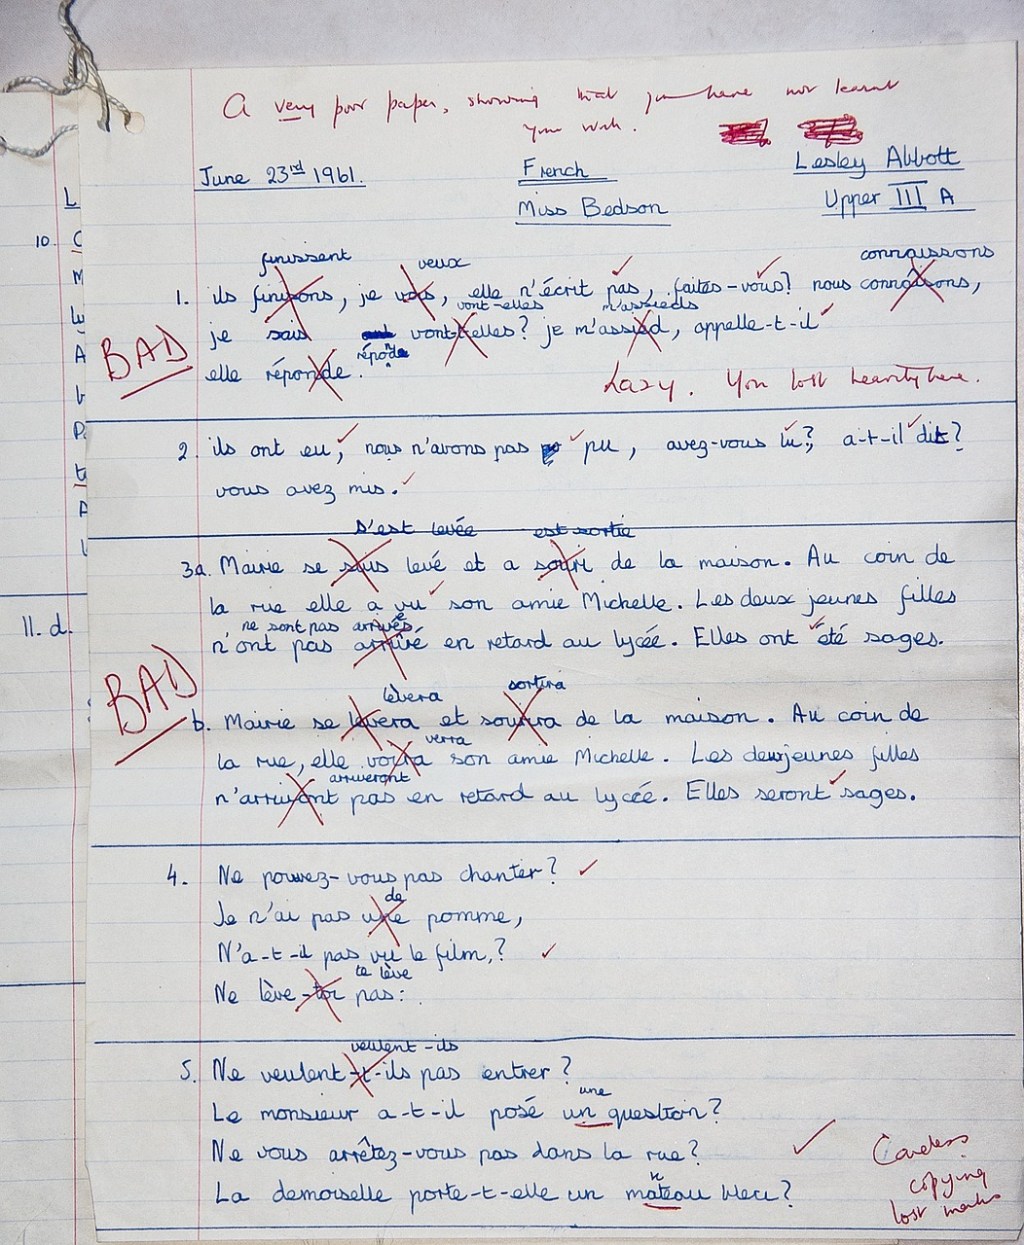 A very poor paper, showing that you have not learnt
your work.
June 23rd 1961. French Lesley Abbott
Miss Bedson Upper III A
finissent veux connaissons
1. ils finisons, je vois, elle n'écrit pas, faites-vous? nous connâisons,
vont-elles m'assieds
je sais vont-t-elles? je m'assied, appelle-t-il
BAD
répond
elle réponde.
Lazy. You lost heavily here.
2. ils ont eu, nous n'avons pas pu, avez-vous lu?, a-t-il dit?
vous avez mis.
s'est levée est sortie
3a. Mairie se suis levé et a souri de la maison. Au coin de
la rue elle a vu son amie Michelle. Les deux jeunes filles
ne sont pas arrivés
n'ont pas arrivé en retard au lycée. Elles ont été sages.
BAD
lèvera sortira
b. Mairie se levera et sourira de la maison. Au coin de
verra
la rue, elle voira son amie Michelle. Les deux jeunes filles
arriveront
n'arrivont pas en retard au lycée. Elles seront sages.
4. Ne pouvez-vous pas chanter?
de
Je n'ai pas une pomme,
N'a-t-il pas vu le film,?
te lève
Ne lève-toi pas:
veulent-ils
5. Ne veulent-t-ils pas entrer?
une
Le monsieur a-t-il posé un question?
Ne vous arrêtez-vous pas dans la rue?
La demoiselle porte-t-elle un mateau bleu?
Careless
copying
lost marks
10.
11. d.